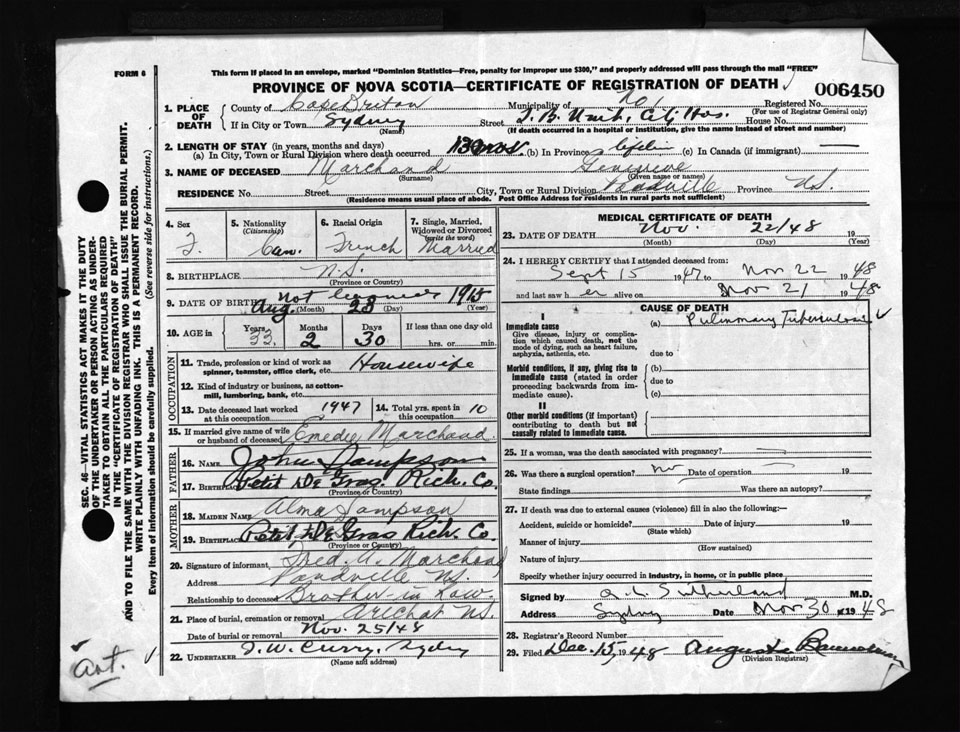 FORM 6
This form if placed in an envelope, marked "Dominion Statistics—Free, penalty for improper use $300," and properly addressed will pass through the mail "FREE"
PROVINCE OF NOVA SCOTIA—CERTIFICATE OF REGISTRATION OF DEATH
006450
1. PLACE OF DEATH
County of Cape Breton Municipality of Registered No.
(For use of Registrar General only)
If in City or Town Sydney Street T. B. Unit, City Hos. House No.
(Name) (If death occurred in a hospital or institution, give the name instead of street and number)
2. LENGTH OF STAY (in years, months and days)
(a) In City, Town or Rural Division where death occurred 13 mos. (b) In Province (c) In Canada (if immigrant) —
3. NAME OF DECEASED Marchand
(Surname) (Given name or names)
RESIDENCE No. Street City, Town or Rural Division Province N.S.
(Residence means usual place of abode. Post Office Address for residents in rural parts not sufficient)
4. Sex
F.
5. Nationality (Citizenship)
Can.
6. Racial Origin
French
7. Single, Married, Widowed or Divorced (write the word)
Married
8. BIRTHPLACE N.S.
(Province or Country)
9. DATE OF BIRTH Aug. 23 1915
(Month) (Day) (Year)
10. AGE in
Years 33
Months 2
Days 30
If less than one day old
hrs. or min.
OCCUPATION
11. Trade, profession or kind of work as spinner, teamster, office clerk, etc. Housewife
12. Kind of industry or business, as cotton-mill, lumbering, bank, etc.
13. Date deceased last worked at this occupation 1947
14. Total yrs. spent in this occupation 10
15. If married give name of wife or husband of deceased Marchand
FATHER
16. NAME John Sampson
17. BIRTHPLACE Petit De Gras. Rich. Co.
(Province or Country)
MOTHER
18. MAIDEN NAME Alma Sampson
19. BIRTHPLACE Petit De Gras Rich. Co.
(Province or Country)
20. Signature of informant Fred. A. Marchand
Address N.S.
Relationship to deceased Brother-in-Law
21. Place of burial, cremation or removal Arichat N.S.
Date of burial or removal Nov. 25/48
22. UNDERTAKER T. W. Curry, Sydney
(Name and address)
MEDICAL CERTIFICATE OF DEATH
23. DATE OF DEATH Nov. 22/48 19
(Month) (Day) (Year)
24. I HEREBY CERTIFY that I attended deceased from:
Sept 15 1947 to Nov 22 1948
and last saw h er alive on Nov 21 1948
CAUSE OF DEATH
I
Immediate cause
Give disease, injury or complication which caused death, not the mode of dying, such as heart failure, asphyxia, asthenia, etc.
(a) Pulmonary Tuberculosis
due to
Morbid conditions, if any, giving rise to immediate cause (stated in order proceeding backwards from immediate cause).
(b)
due to
(c)
II
Other morbid conditions (if important) contributing to death but not causally related to immediate cause.
25. If a woman, was the death associated with pregnancy? —
26. Was there a surgical operation? no Date of operation 19
State findings Was there an autopsy?
27. If death was due to external causes (violence) fill in also the following:—
Accident, suicide or homicide? Date of injury 19
(State which)
Manner of injury
(How sustained)
Nature of injury
Specify whether injury occurred in industry, in home, or in public place
Signed by Sutherland M.D.
Address Sydney Date Nov 30 1948
28. Registrar's Record Number
29. Filed Dec. 15, 1948
(Division Registrar)
SEC. 46—VITAL STATISTICS ACT MAKES IT THE DUTY OF THE UNDERTAKER OR PERSON ACTING AS UNDERTAKER TO OBTAIN ALL THE PARTICULARS REQUIRED IN THE "CERTIFICATE OF REGISTRATION OF DEATH" AND TO FILE THE SAME WITH THE DIVISION REGISTRAR WHO SHALL ISSUE THE BURIAL PERMIT.
WRITE PLAINLY WITH UNFADING INK. THIS IS A PERMANENT RECORD.
Every item of information should be carefully supplied. (See reverse side for instructions.)